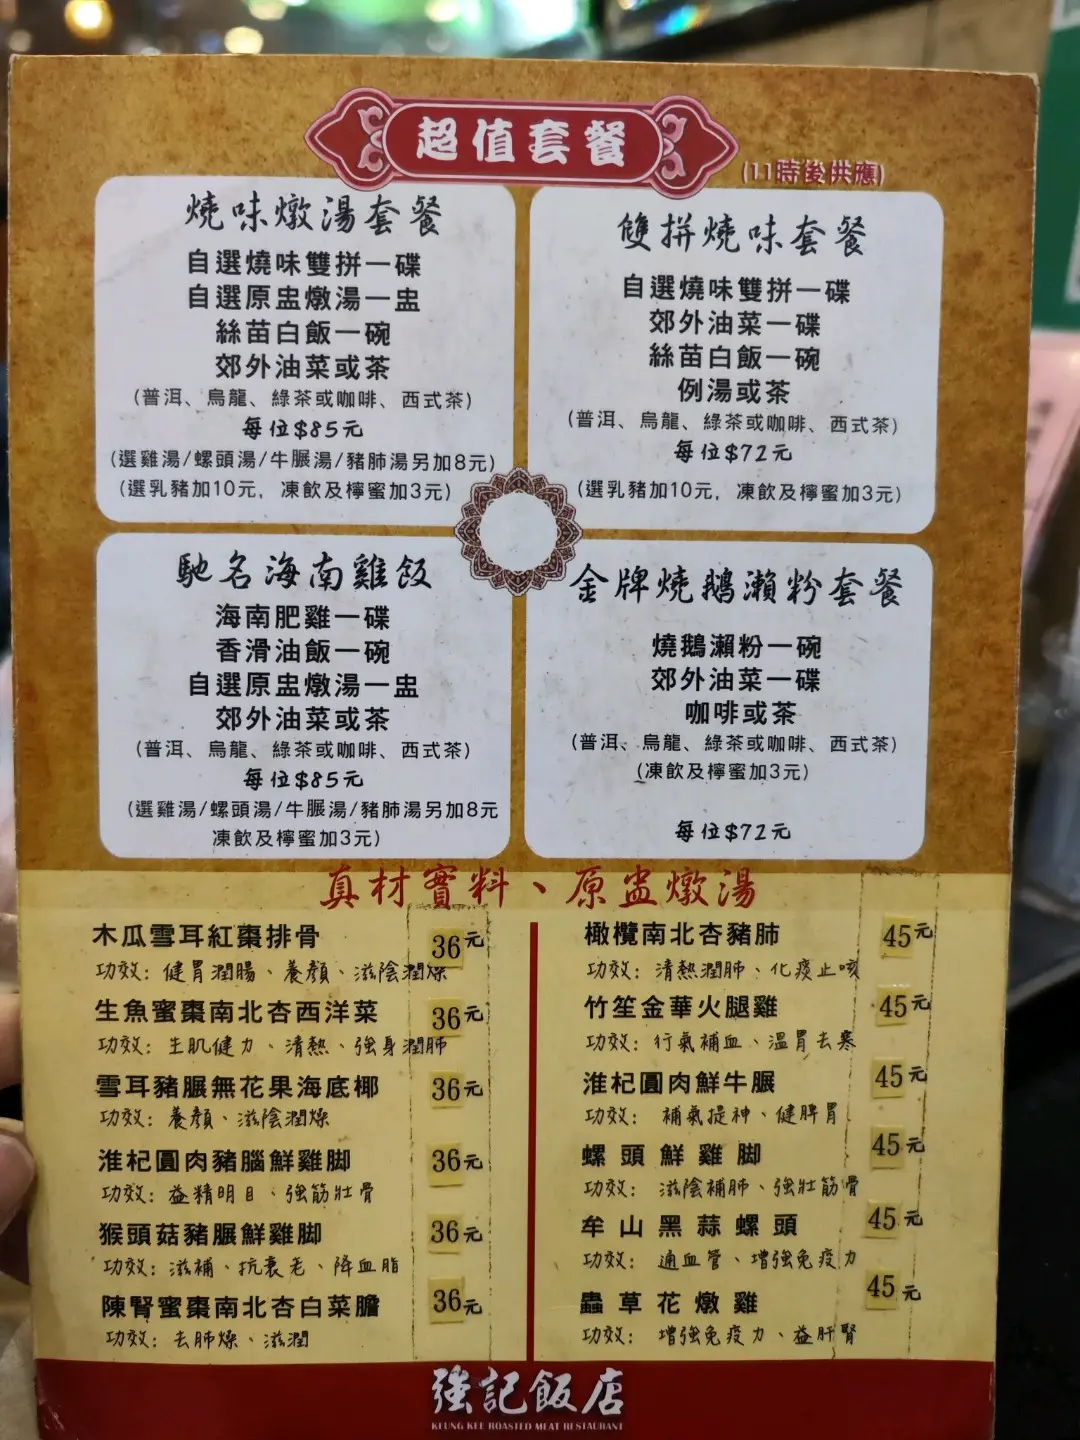 超值套餐
(11時後供應)
燒味燉湯套餐
自選燒味雙拼一碟
自選原盅燉湯一盅
絲苗白飯一碗
郊外油菜或茶
(普洱、烏龍、綠茶或咖啡、西式茶)
每位$85元
(選雞湯/螺頭湯/牛𦟌湯/豬肺湯另加8元)
(選乳豬加10元，凍飲及檸蜜加3元)
雙拼燒味套餐
自選燒味雙拼一碟
郊外油菜一碟
絲苗白飯一碗
例湯或茶
(普洱、烏龍、綠茶或咖啡、西式茶)
每位$72元
(選乳豬加10元，凍飲及檸蜜加3元)
馳名海南雞飯
海南肥雞一碟
香滑油飯一碗
自選原盅燉湯一盅
郊外油菜或茶
(普洱、烏龍、綠茶或咖啡、西式茶)
每位$85元
(選雞湯/螺頭湯/牛𦟌湯/豬肺湯另加8元
凍飲及檸蜜加3元)
金牌燒鵝瀨粉套餐
燒鵝瀨粉一碗
郊外油菜一碟
咖啡或茶
(普洱、烏龍、綠茶或咖啡、西式茶)
(凍飲及檸蜜加3元)
每位$72元
真材實料、原盅燉湯
木瓜雪耳紅棗排骨 36元
功效：健胃潤腸、養顏、滋陰潤燥
生魚蜜棗南北杏西洋菜 36元
功效：生肌健力、清熱、強身潤肺
雪耳豬𦟌無花果海底椰 36元
功效：養顏、滋陰潤燥
淮杞圓肉豬腦鮮雞脚 36元
功效：益精明目、強筋壯骨
猴頭菇豬𦟌鮮雞脚 36元
功效：滋補、抗衰老、降血脂
陳腎蜜棗南北杏白菜膽 36元
功效：去肺燥、滋潤
橄欖南北杏豬肺 45元
功效：清熱潤肺、化痰止咳
竹笙金華火腿雞 45元
功效：行氣補血、溫胃去寒
淮杞圓肉鮮牛𦟌 45元
功效：補氣提神、健脾胃
螺頭鮮雞脚 45元
功效：滋陰補肺、強壯筋骨
牟山黑蒜螺頭 45元
功效：通血管、增強免疫力
蟲草花燉雞 45元
功效：增強免疫力、益肝腎
強記飯店
KEUNG KEE ROASTED MEAT RESTAURANT